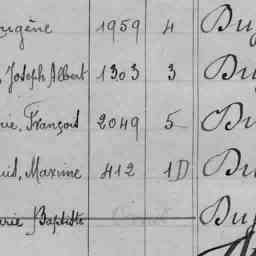 ugène 1959 4 Du
, Joseph Albert 1303 3 Du
rie, François 2049 5 Du
uis, Maxime 412 1D Du
arie Baptiste Du